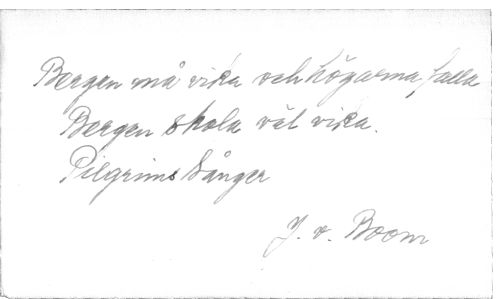 Bergen må vika och högarna falla
Bergen skola väl vika.
Pilgrims Sånger
J. v. Boom